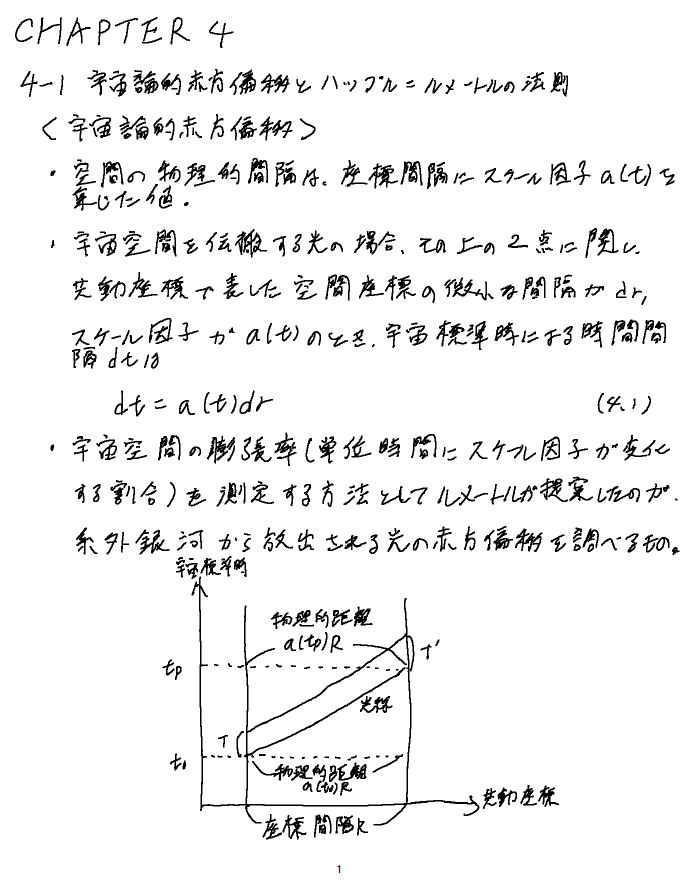 CHAPTER 4
4-1 宇宙論的赤方偏移とハッブル=ルメートルの法則
<宇宙論的赤方偏移>
・空間の物理的間隔は、座標間隔にスケール因子a(t)を
乗じた値。
・宇宙空間を伝搬する光の場合、その上の2点に関し、
共動座標で表した空間座標の微小な間隔がdr,
スケール因子がa(t)のとき、宇宙標準時による時間間
隔dtは
dt = a(t)dr (4.1)
・宇宙空間の膨張率(単位時間にスケール因子が変化
する割合)を測定する方法としてルメートルが提案したのが、
系外銀河から放出される光の赤方偏移を調べるもの。
宇宙標準時
物理的距離
a(tp)R
tp
T'
光線
T
物理的距離
a(t0)R
共動座標
座標間隔R
1